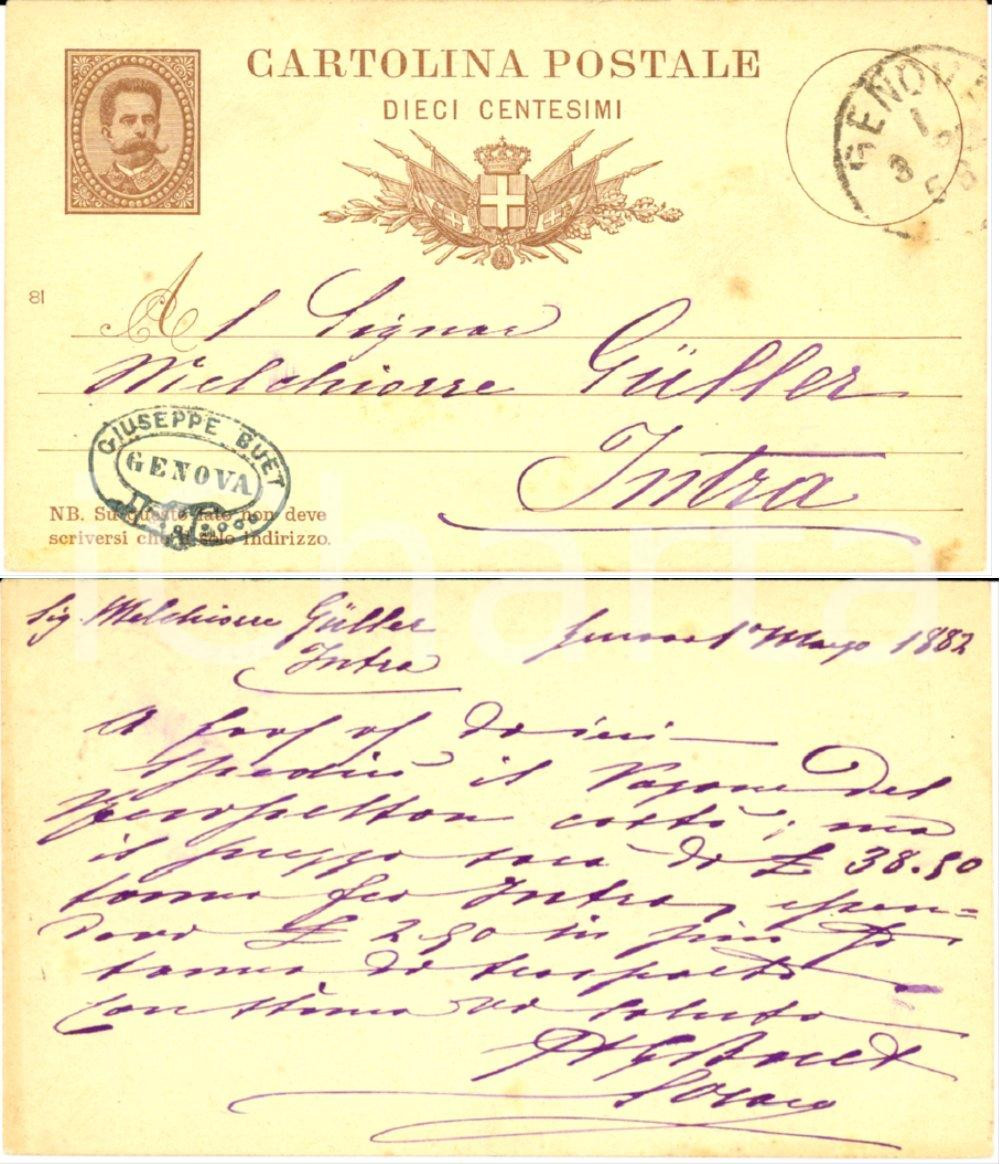 CARTOLINA POSTALE
DIECI CENTESIMI
GENOVA
81
Al Signor
Melchiorre Güller
Intra
GIUSEPPE BUET
GENOVA
NB. Su questo lato non deve
scriversi che il solo indirizzo.
Sig. Melchiorre Güller
Intra
Genova 1° Marzo 1882
A di ieri
spedii il Vagone del
costì; ma
il prezzo sarà di £ 38.50
Intra,
£ 2.50 in più
di trasporto
Con stima vi saluto
G Buet